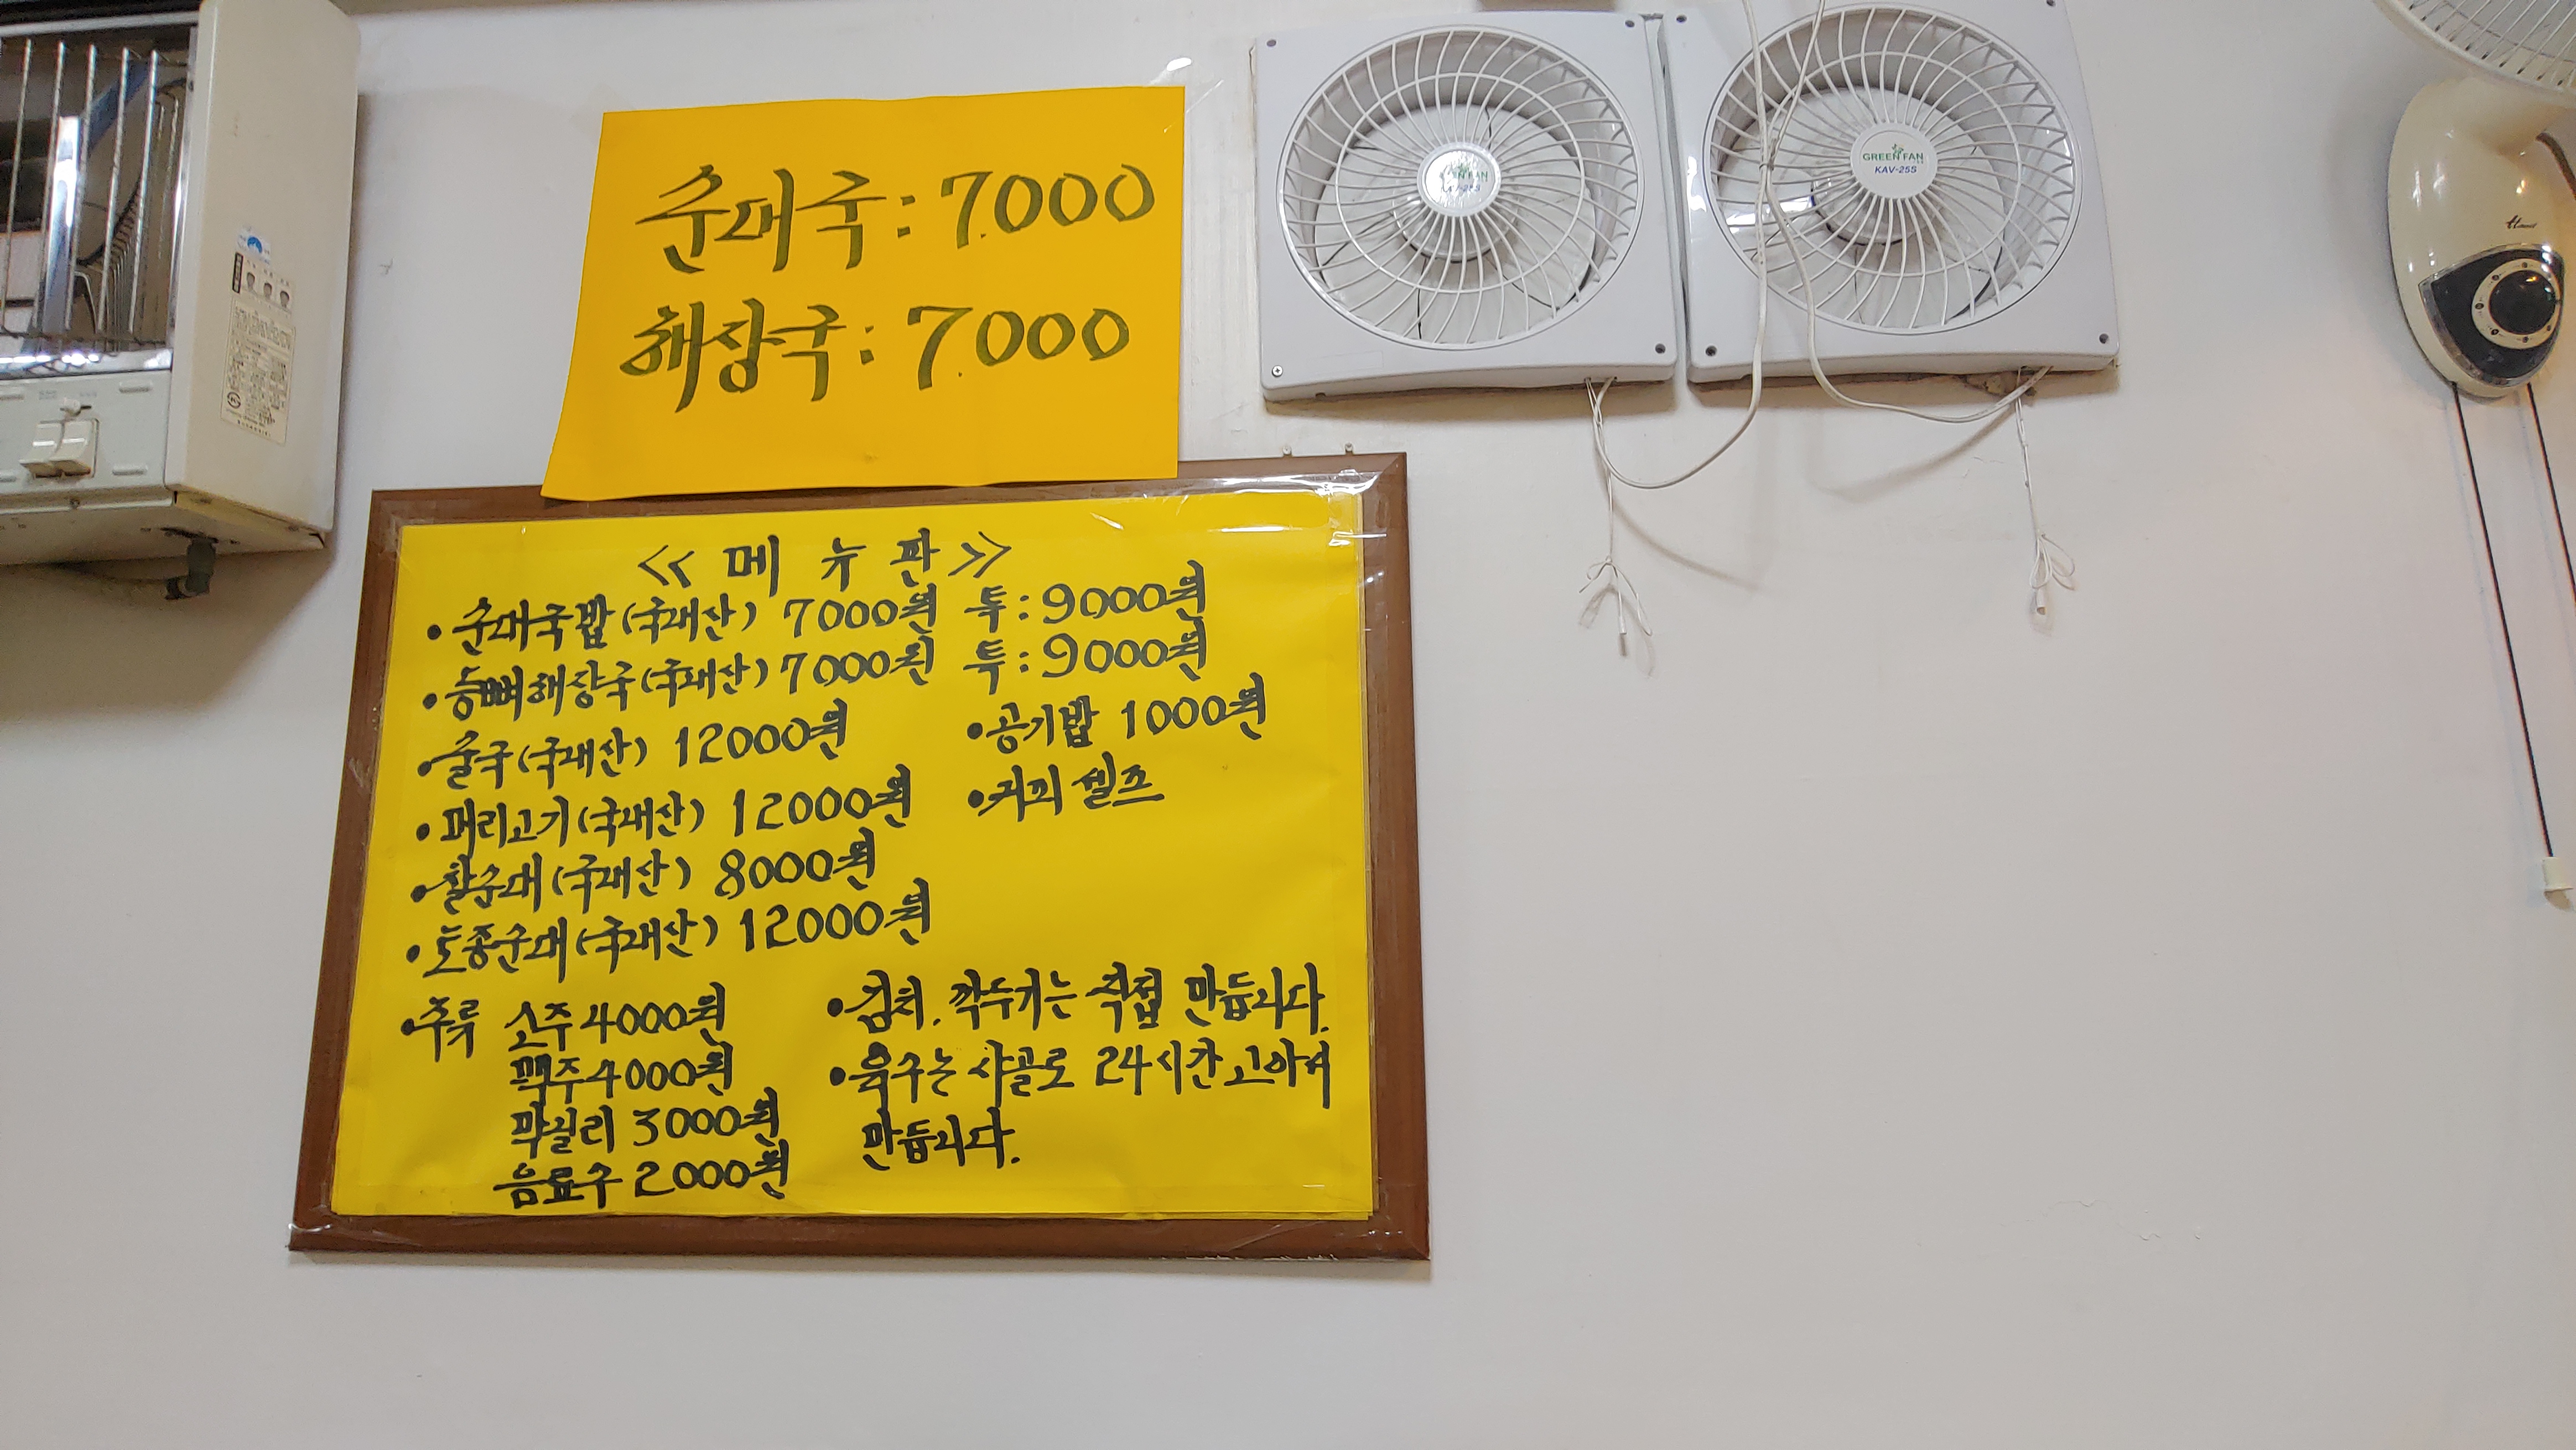 순대국: 7.000
해장국: 7.000
<< 메 뉴 판 >>
• 순대국밥(국내산) 7000원 특: 9000원
• 등뼈해장국(국내산) 7000원 특: 9000원
• 술국(국내산) 12000원
• 공기밥 1000원
• 머리고기(국내산) 12000원
• 커피 셀프
• 찰순대(국내산) 8000원
• 토종순대(국내산) 12000원
• 주류 소주 4000원
맥주 4000원
막걸리 3000원
음료수 2000원
• 김치. 깍두기는 직접 만듭니다.
• 육수는 사골로 24시간 고아서
만듭니다.
GREEN FAN
KAV-25S
GREEN FAN
KAV-25S